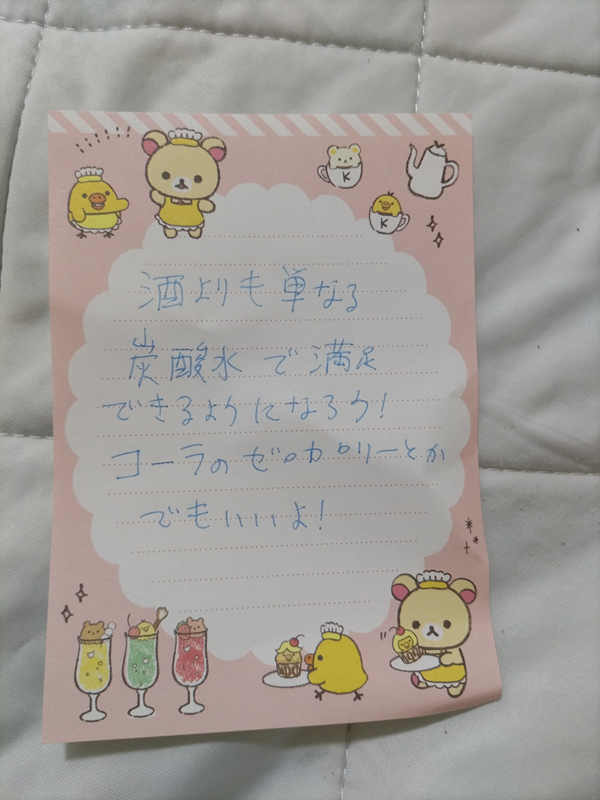 酒よりも単なる
炭酸水で満足
できるようになろう!
コーラのゼロカロリーとか
でもいいよ!
K
K